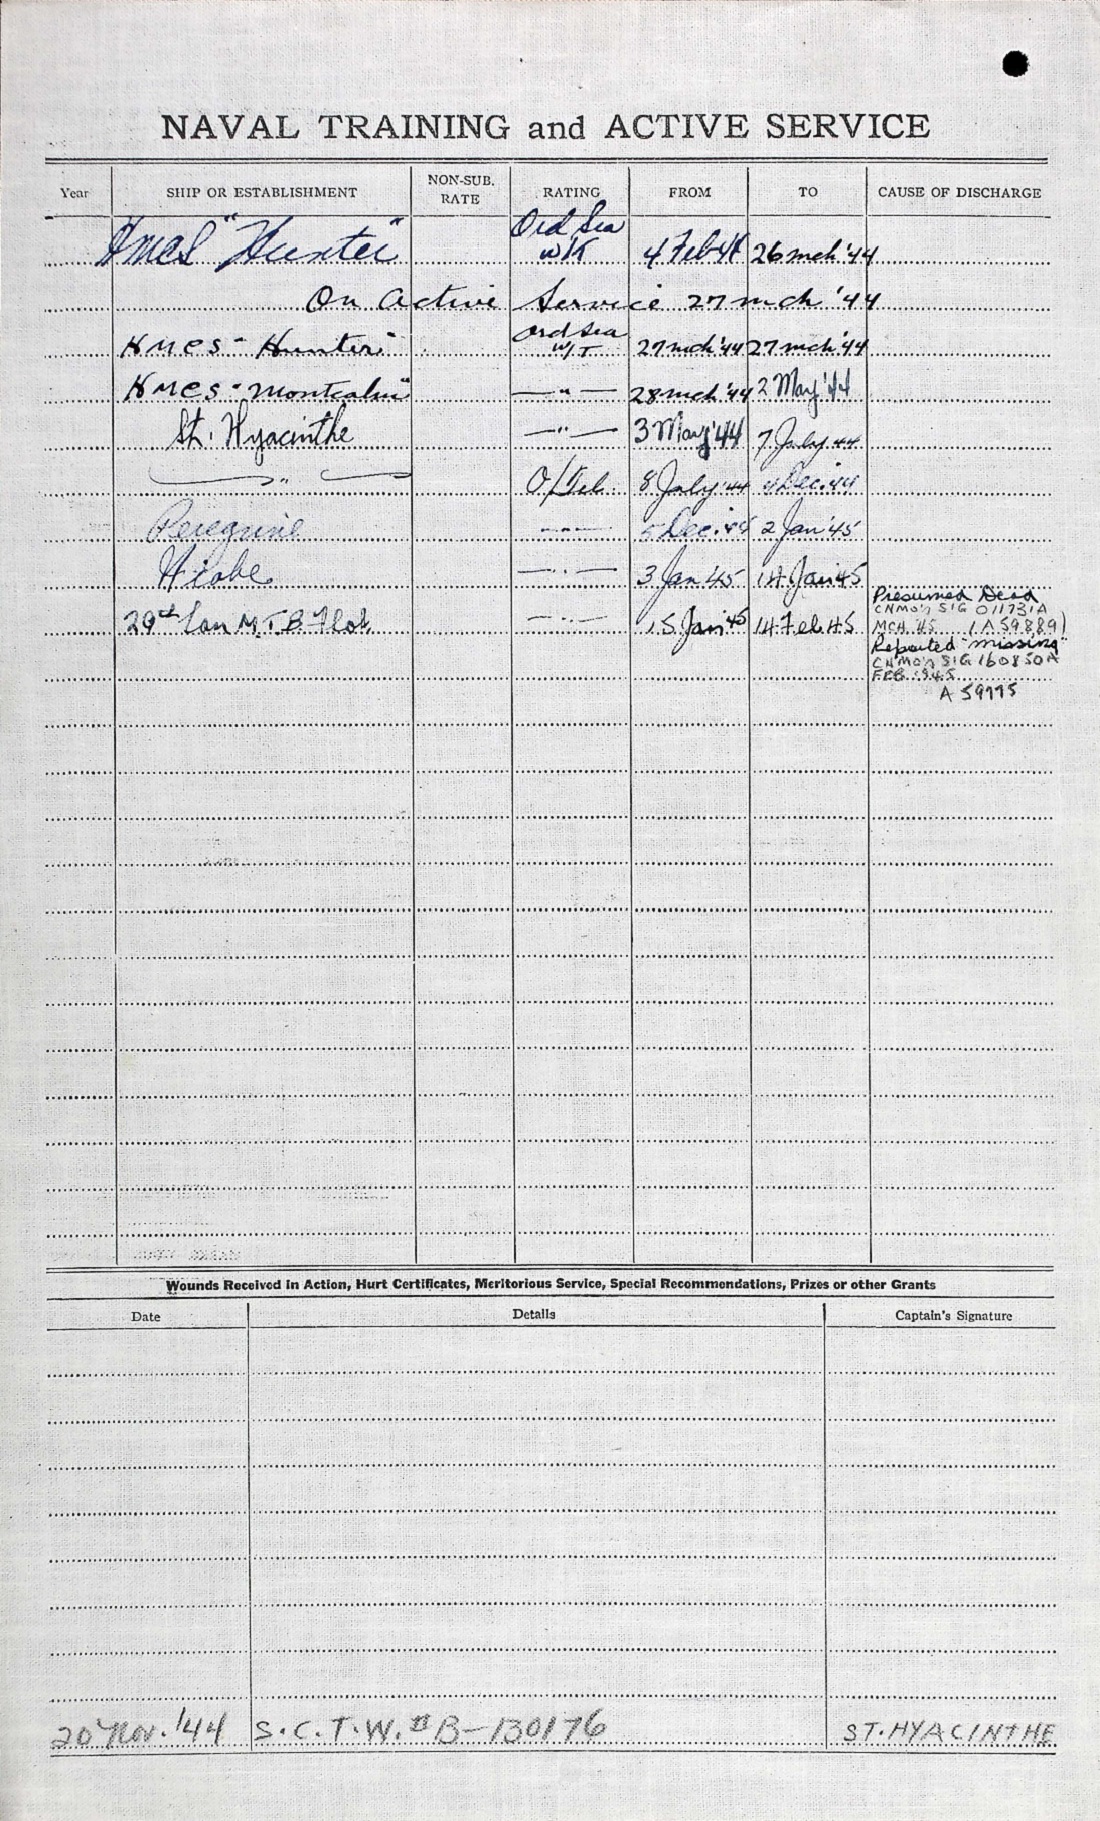 NAVAL TRAINING and ACTIVE SERVICE
Year SHIP OR ESTABLISHMENT NON-SUB. RATE RATING FROM TO CAUSE OF DISCHARGE
HMCS "Hunter" Ord Sea 4 Feb 44 26 mch '44
On Active Service 27 mch '44
HMCS - Hunter" Ord Sea W/T 27 mch '44 27 mch '44
HMCS - Montcalm" — " — 28 mch '44 2 May '44
St. Hyacinthe — " — 3 May '44 7 July 44
— " — O/Tel. 8 July '44 4 Dec. 44
Peregrine — " — 5 Dec. '44 2 Jan '45
Niobe — " — 3 Jan '45 14 Jan 45
29th Can M.T.B. Flot. — " — 15 Jan '45 14 Feb 45
Presumed Dead
CNMO's SIG 011731A
MCH. '45 (A59889)
Reported "missing"
CNMO's SIG 160850A
FEB. 1945
A 59775
Wounds Received in Action, Hurt Certificates, Meritorious Service, Special Recommendations, Prizes or other Grants
Date Details Captain's Signature
20 Nov. '44 S.C.T.W. # B-130176 ST. HYACINTHE